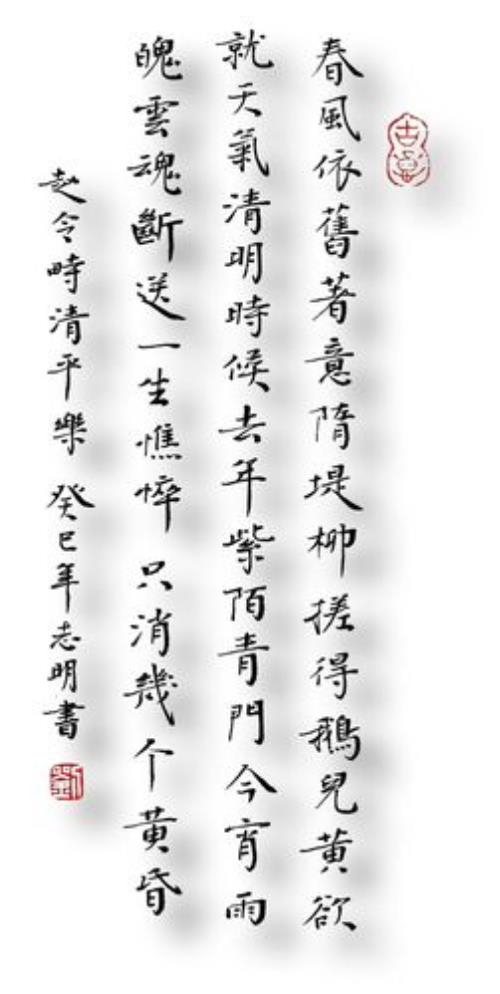 春風依舊著意隋堤柳搓得鵝兒黃欲
就天氣清明時候去年紫陌青門今宵雨
魄雲魂斷送一生憔悴只消幾个黃昏
赵令畤清平樂 癸巳年志明書
劉